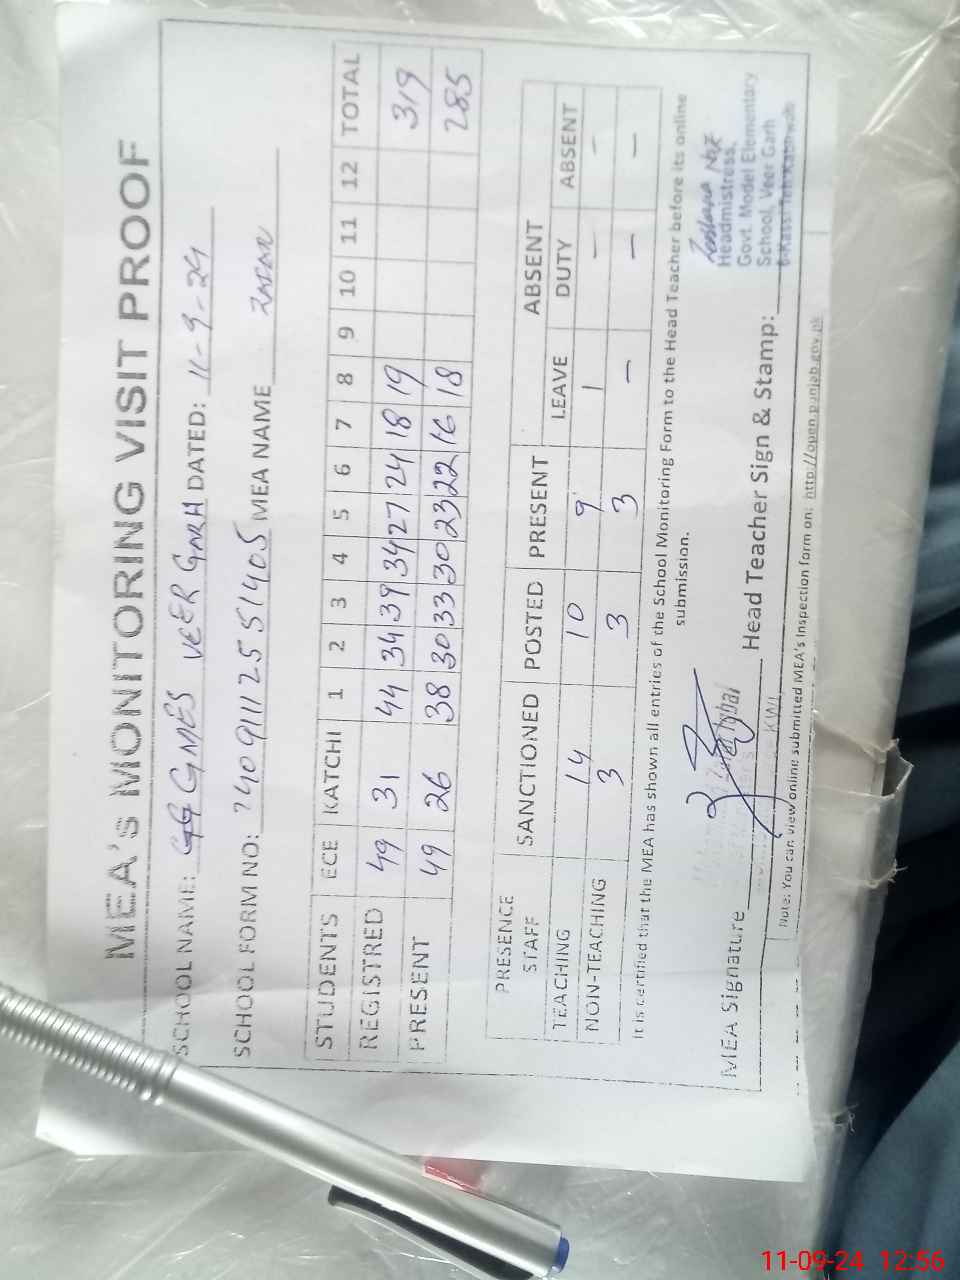 MEA's MONITORING VISIT PROOF
SCHOOL NAME: GMES VEER GARH DATED: 11-9-24
SCHOOL FORM NO: 2409111255 51405 MEA NAME ZAFAR
STUDENTS ECE KATCHI 1 2 3 4 5 6 7 8 9 10 11 12 TOTAL
REGISTRED 49 31 44 34 39 34 27 24 18 19 319
PRESENT 49 26 38 30 33 30 23 22 16 18 285
PRESENCE STAFF SANCTIONED POSTED PRESENT ABSENT
LEAVE DUTY ABSENT
TEACHING 14 10 9 1 - -
NON-TEACHING 3 3 3 - - -
It is certified that the MEA has shown all entries of the School Monitoring Form to the Head Teacher before its online
submission.
Headmistress,
Govt. Model Elementary
School, Veer Garh
MEA Signature Head Teacher Sign & Stamp:
Note: You can view online submitted MEA's Inspection form on: http://open.punjab.gov.pk
11-09-24 12:56